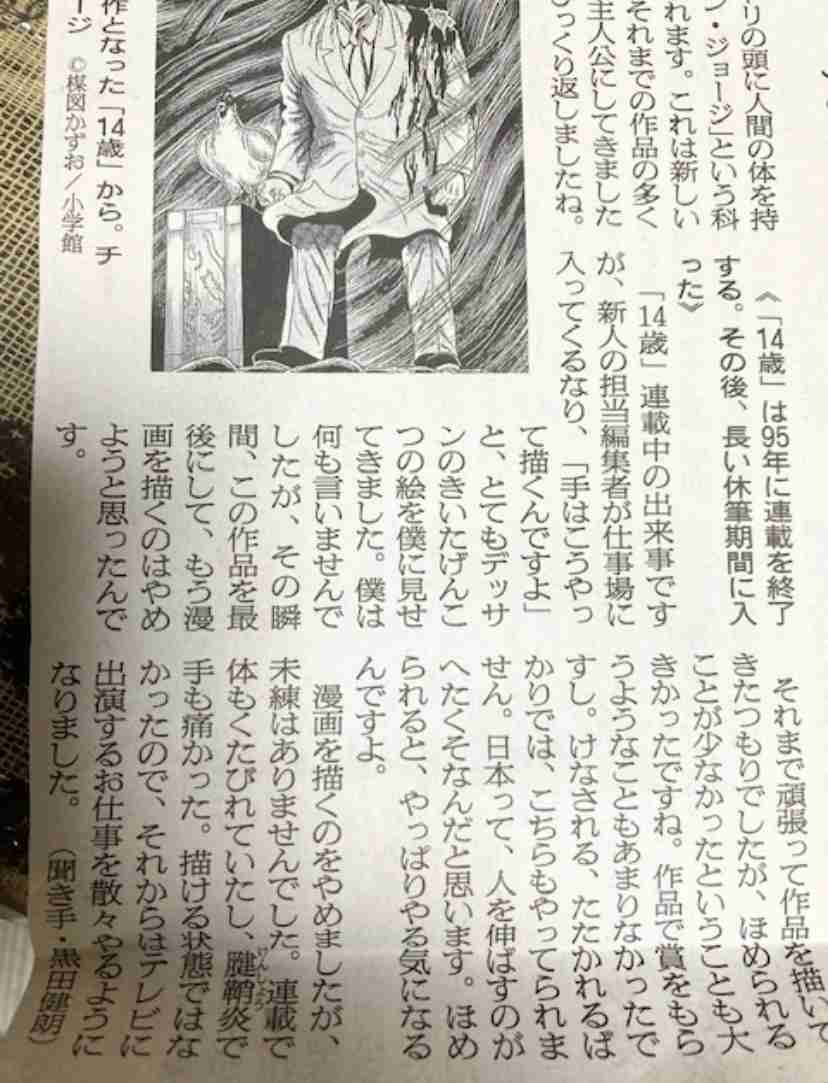 リの頭に人間の体を持
ン・ジョージ」という科
れます。これは新しい
それまでの作品の多く
主人公にしてきました
っくり返しましたね。
《「14歳」は95年に連載を終了
する。その後、長い休筆期間に入
った》
「14歳」連載中の出来事です
が、新人の担当編集者が仕事場に
入ってくるなり、「手はこうやっ
て描くんですよ」
と、とてもデッサ
ンのきいたげんこ
つの絵を僕に見せ
てきました。僕は
何も言いませんで
したが、その瞬
間、この作品を最
後にして、もう漫
画を描くのはやめ
ようと思ったんで
す。
それまで頑張って作品を描いて
きたつもりでしたが、ほめられる
ことが少なかったということも大
きかったですね。作品で賞をもら
うようなこともあまりなかったで
すし。けなされる、たたかれるば
かりでは、こちらもやってられま
せん。日本って、人を伸ばすのが
へたくそなんだと思います。ほめ
られると、やっぱりやる気になる
んですよ。
漫画を描くのをやめましたが、
未練はありませんでした。連載で
体もくたびれていたし、腱鞘炎で
けんしょう
手も痛かった。描ける状態ではな
かったので、それからはテレビに
出演するお仕事を散々やるように
なりました。（聞き手・黒田健朗）
作となった「14歳」から。チ
ージ ©楳図かずお／小学館